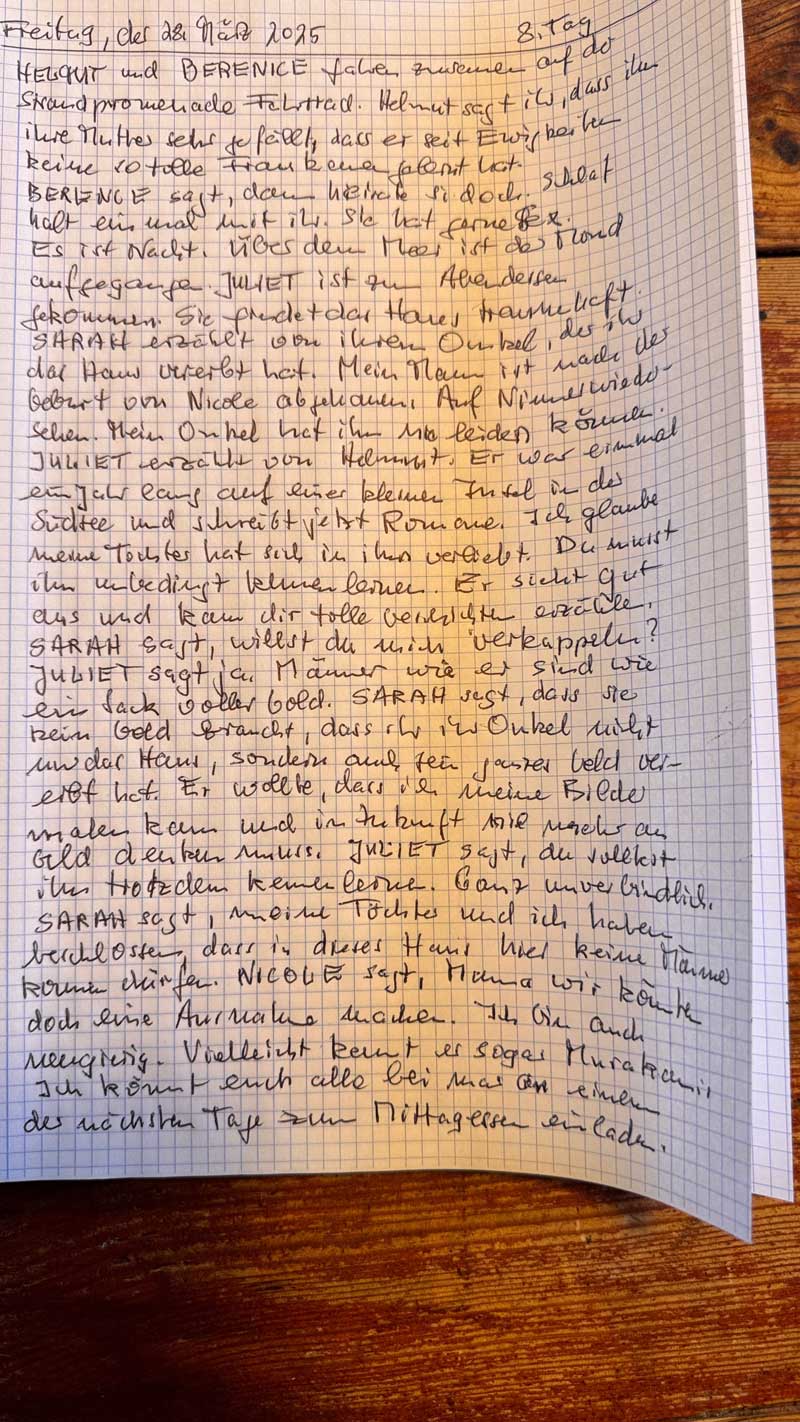 Freitag, der 28. März 2025 8. Tag
HELMUT und BERENICE fahren zusammen auf der
Strandpromenade Fahrrad. Helmut sagt ihr, dass ihm
ihre Mutter sehr gefällt, dass er seit Ewigkeiten
keine so tolle Frau kennengelernt hat.
BERENICE sagt, dann heirate sie doch. Schlaf
halt einmal mit ihr. Sie hat gerne Sex.
Es ist Nacht. Über dem Meer ist der Mond
aufgegangen. JULIET ist zum Abendessen
gekommen. Sie findet das Haus traumhaft.
SARAH erzählt von ihrem Onkel, der ihr
das Haus vererbt hat. Mein Mann ist nach der
Geburt von Nicole abgehauen. Auf Nimmerwieder-
sehen. Mein Onkel hat ihn nie leiden können.
JULIET erzählt von Helmut. Er war einmal
ein Jahr lang auf einer kleinen Insel in der
Südsee und schreibt jetzt Romane. Ich glaube
meine Tochter hat sich in ihn verliebt. Du musst
ihn unbedingt kennenlernen. Er sieht gut
aus und kann dir tolle Geschichten erzählen.
SARAH sagt, willst du mich verkuppeln?
JULIET sagt ja. Männer wie er sind wie
ein Sack voller Gold. SARAH sagt, dass sie
kein Gold braucht, dass ihr ihr Onkel nicht
nur das Haus, sondern auch sein ganzes Geld ver-
erbt hat. Er wollte, dass ich meine Bilder
malen kann und in Zukunft nie mehr an
Geld denken muss. JULIET sagt, du solltest
ihn trotzdem kennenlernen. Ganz unverbindlich.
SARAH sagt, meine Tochter und ich haben
beschlossen, dass in dieses Haus hier keine Männer
kommen dürfen. NICOLE sagt, Mama wir könnten
doch eine Ausnahme machen. Ich bin auch
neugierig. Vielleicht kennt er sogar Murakami.
Ich könnt euch alle bei mir an einem
der nächsten Tage zum Mittagessen einladen.